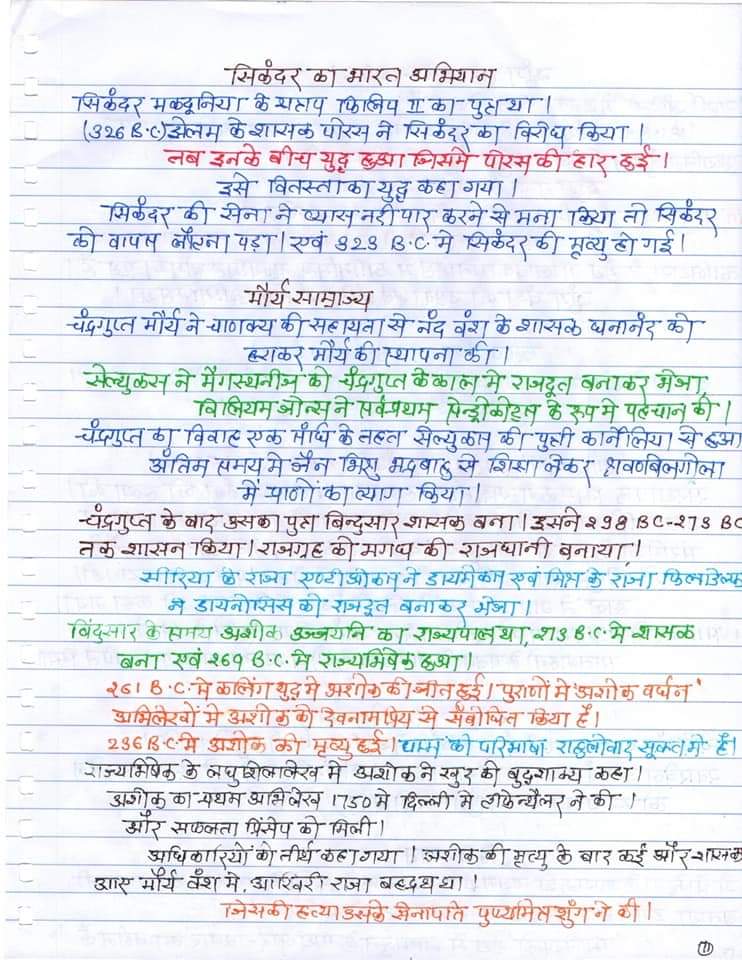 सिकंदर का भारत अभियान
सिकंदर मकदूनिया के क्षत्रप फिलिप II का पुत्र था।
(326 B.C.) झेलम के शासक पोरस ने सिकंदर का विरोध किया।
तब इनके बीच युद्ध हुआ जिसमे पोरस की हार हुई।
इसे वितस्ता का युद्ध कहा गया।
सिकंदर की सेना ने व्यास नदी पार करने से मना किया तो सिकंदर
को वापस लौटना पड़ा। एवं 323 B.C. मे सिकंदर की मृत्यु हो गई।
मौर्य साम्राज्य
चंद्रगुप्त मौर्य ने चाणक्य की सहायता से नंद वंश के शासक घनानंद को
हराकर मौर्य की स्थापना की।
सेल्युकस ने मेगस्थनीज को चंद्रगुप्त के काल मे राजदूत बनाकर भेजा,
विलियम जोन्स ने सर्वप्रथम सेन्ड्रीकोट्स के रूप मे पहचान की।
चंद्रगुप्त का विवाह एक संधि के तहत सेल्युकस की पुत्री कार्नेलिया से हुआ
अंतिम समय मे जैन भिक्षु भद्रबाहु से शिक्षा लेकर श्रवणबेलगोला
में प्राणों का त्याग किया।
चंद्रगुप्त के बाद उसका पुत्र बिन्दुसार शासक बना। इसने 298 BC-273 BC
तक शासन किया। राजग्रह को मगध की राजधानी बनाया।
सीरिया के राजा एण्टीओकस ने डायमेकस एवं मिस्र के राजा फिलाडेल्फ
ने डायनोसिस को राजदूत बनाकर भेजा।
बिंदुसार के समय अशोक उज्जयनि का राज्यपाल था, 273 B.C. मे शासक
बना एवं 269 B.C. मे राज्यभिषेक हुआ।
261 B.C. मे कलिंग युद्ध मे अशोक की जीत हुई। पुराणों मे 'अशोक वर्धन'
अभिलेखों मे अशोक को देवनामप्रिय से संबोधित किया है।
236 B.C. मे अशोक की मृत्यु हुई। धम्म की परिभाषा राहुलोवाद सूक्त मे है।
राज्यभिषेक के लघु शिलालेख मे अशोक ने खुद को बुद्धशाक्य कहा।
अशोक का प्रथम अभिलेख 1750 मे दिल्ली मे टीफेन्थैलर ने की।
और सफलता प्रिंसेप को मिली।
अधिकारियों को तीर्थ कहा गया। अशोक की मृत्यु के बाद कई और शासक
आए मौर्य वंश मे, आखिरी राजा बहद्रथ था।
जिसकी हत्या उसके सेनापति पुष्यमित्र शुंग ने की।
11